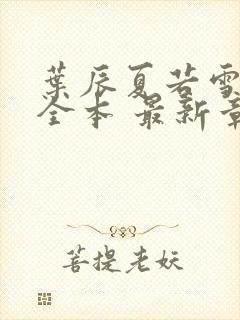 葉辰夏若雪
全本 最新章
菩提老妖